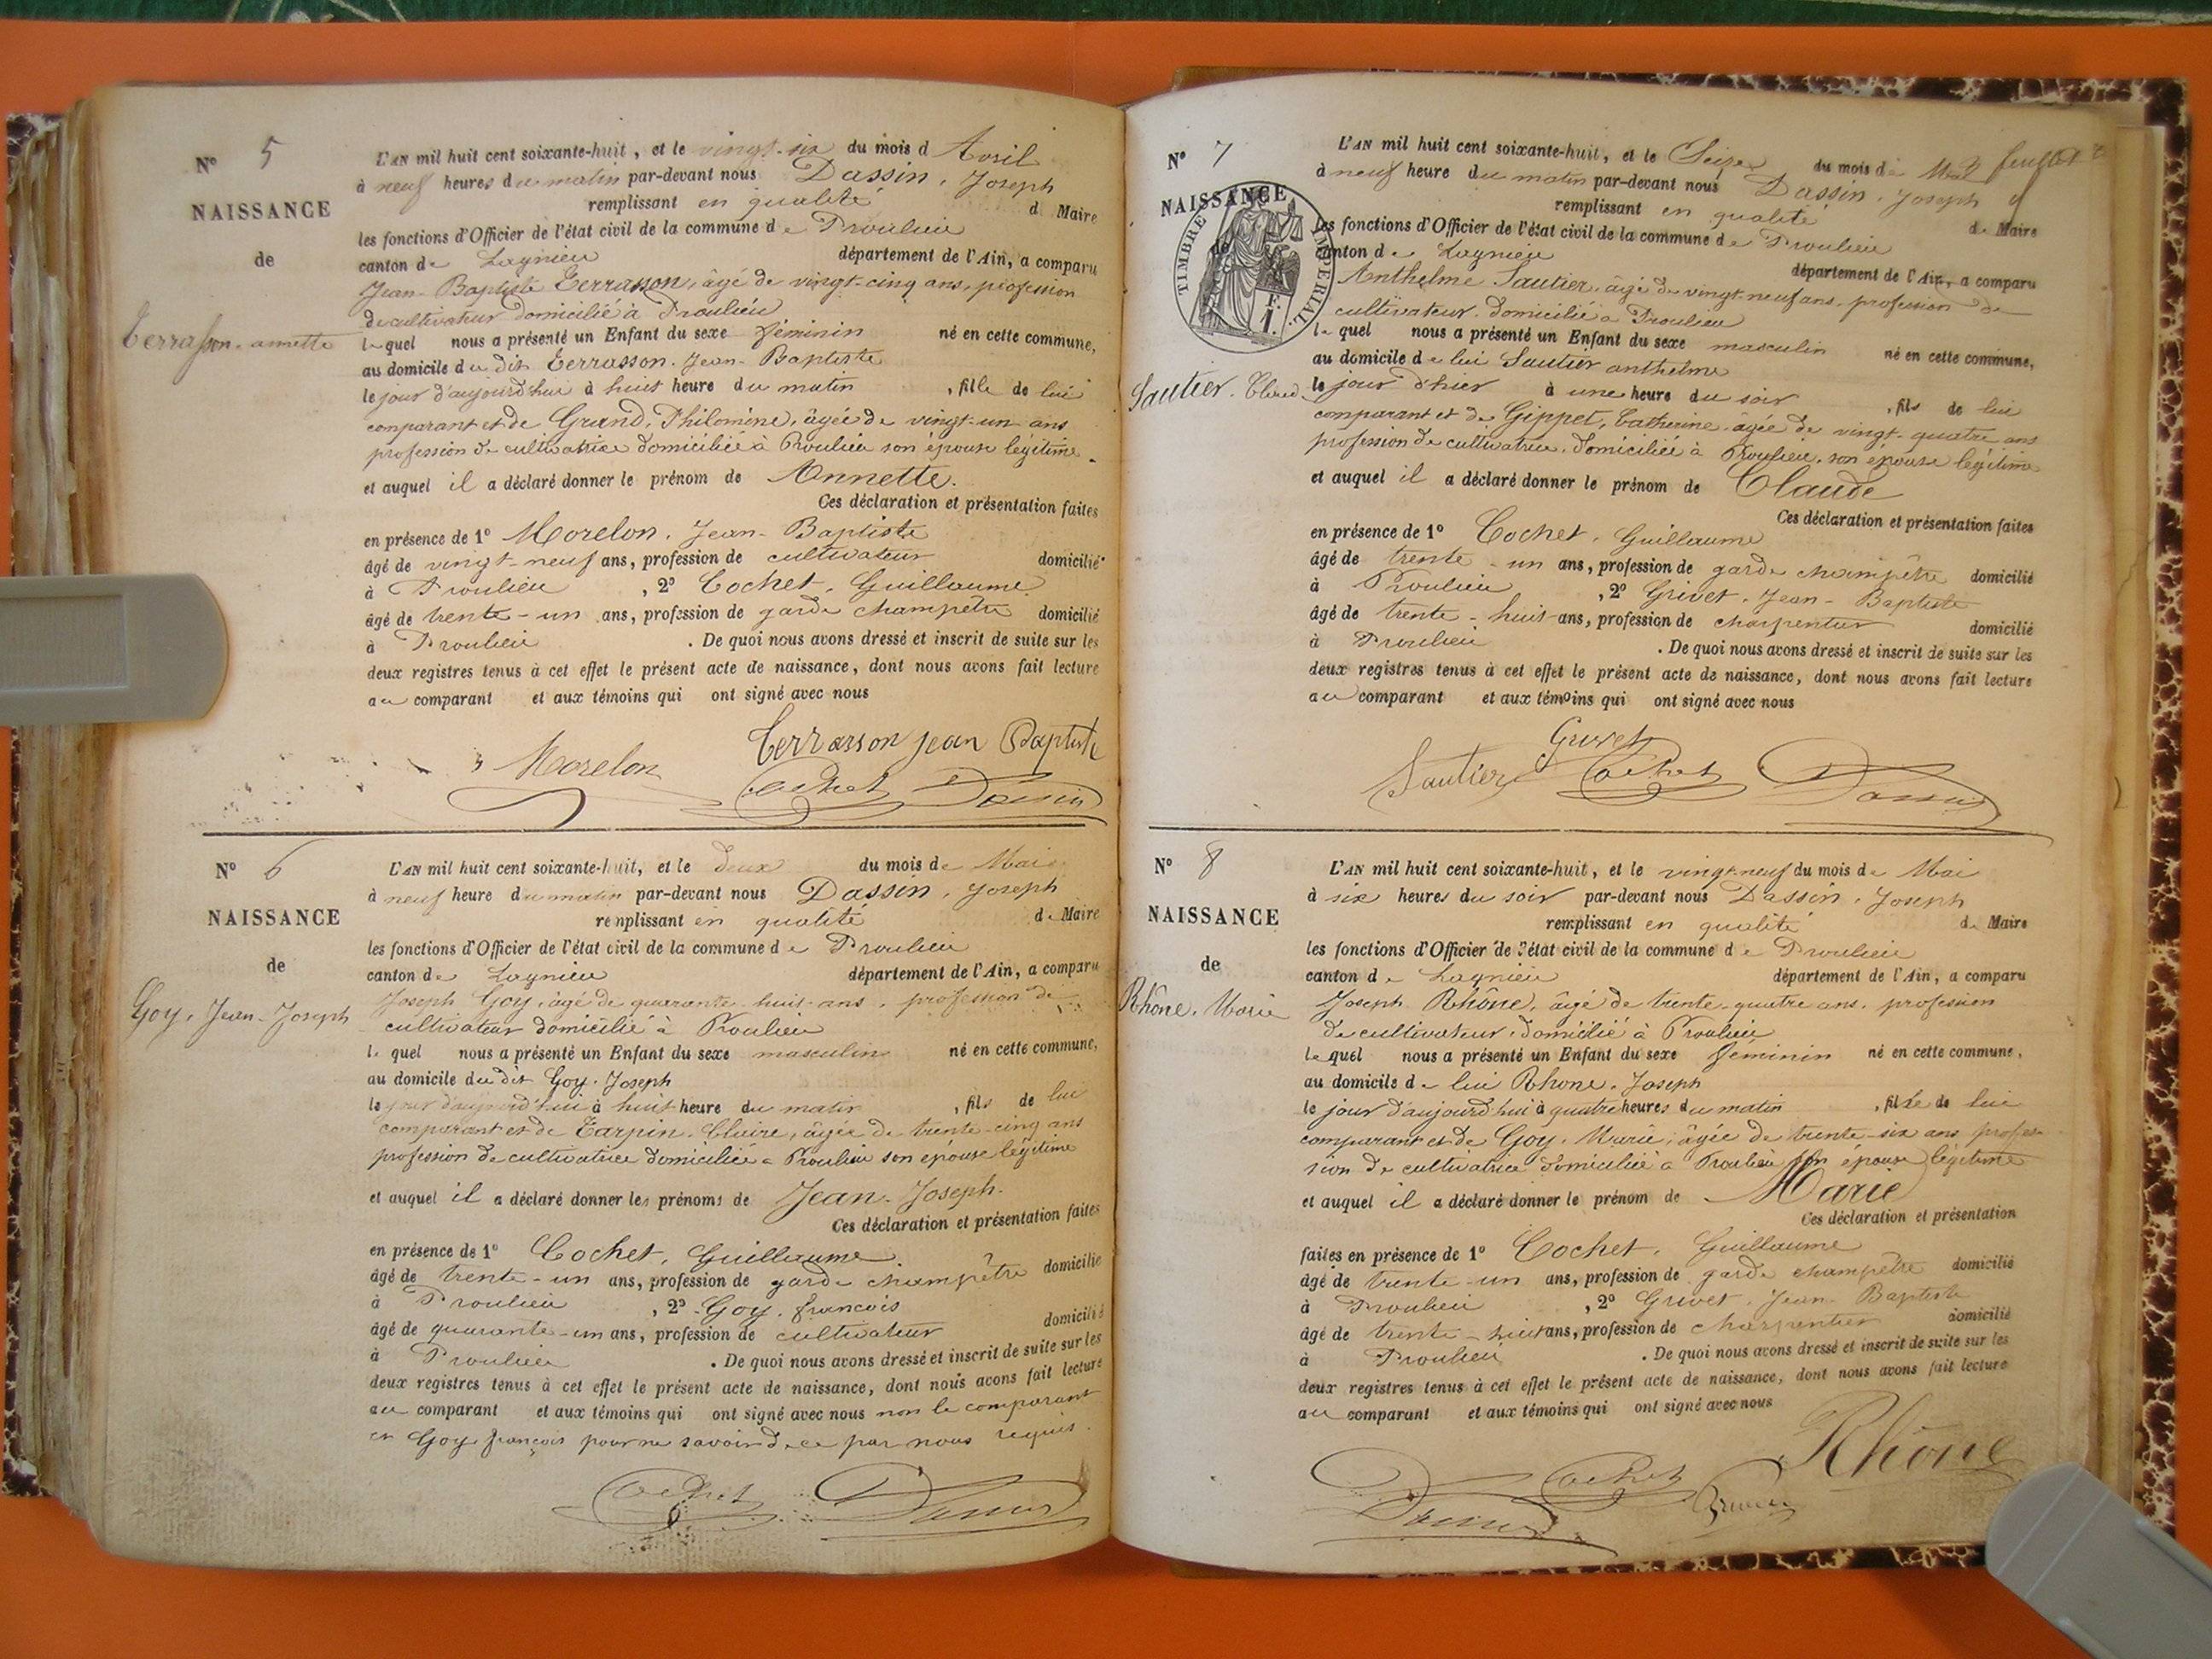 N° 5
NAISSANCE
de
Terrasson. annette
L'AN mil huit cent soixante-huit, et le vingt-six du mois d Avril
à neuf heures du matin par-devant nous Dassin, Joseph
remplissant en qualité d Maire
les fonctions d'Officier de l'état civil de la commune de Proulieu
canton de Lagnieu département de l'Ain, a comparu
Jean-Baptiste Terrasson, âgé de vingt-cinq ans, profession
de cultivateur domicilié à Proulieu
lequel nous a présenté un Enfant du sexe féminin né en cette commune,
au domicile du dit Terrasson. Jean-Baptiste
le jour d'aujourd'hui à huit heure du matin , fille de lui
comparant et de Grand, Philomène, âgée de vingt-un ans
profession de cultivatrice domiciliée à Proulieu son épouse légitime.
et auquel il a déclaré donner le prénom de Annette.
Ces déclaration et présentation faites
en présence de 1° Morelon, Jean-Baptiste
âgé de vingt-neuf ans, profession de cultivateur domicilié
à Proulieu , 2° Cochet, Guillaume
âgé de trente-un ans, profession de garde champêtre domicilié
à Proulieu . De quoi nous avons dressé et inscrit de suite sur les
deux registres tenus à cet effet le présent acte de naissance, dont nous avons fait lecture
au comparant et aux témoins qui ont signé avec nous
Terrasson jean Baptiste
Morelon
Cochet Dassin
N° 6
NAISSANCE
de
Goy, Jean-Joseph
L'AN mil huit cent soixante-huit, et le deux du mois de Mai
à neuf heure du matin par-devant nous Dassin, Joseph
remplissant en qualité de Maire
les fonctions d'Officier de l'état civil de la commune de Proulieu
canton de Lagnieu département de l'Ain, a comparu
Joseph Goy, âgé de quarante-huit ans, profession de
cultivateur domicilié à Proulieu
le quel nous a présenté un Enfant du sexe masculin né en cette commune,
au domicile du dit Goy. Joseph
le jour d'aujourd'hui à huit heure du matin , fils de lui
comparant et de Tarpin. Claire, âgée de trente-cinq ans
profession de cultivatrice domiciliée a Proulieu son épouse légitime
et auquel il a déclaré donner les prénoms de Jean-Joseph.
Ces déclaration et présentation faites
en présence de 1° Cochet, Guillaume
âgé de trente-un ans, profession de garde champêtre domicilié
à Proulieu , 2° Goy, françois
âgé de quarante-un ans, profession de cultivateur domicilié
à Proulieu . De quoi nous avons dressé et inscrit de suite sur les
deux registres tenus à cet effet le présent acte de naissance, dont nous avons fait lecture
au comparant et aux témoins qui ont signé avec nous non le comparant
et Goy françois pour ne savoir de ce par nous requis.
Cochet Dassin
N° 7
NAISSANCE
de
TIMBRE IMPERIAL.
1 F.
Sautier. Claude
L'AN mil huit cent soixante-huit, et le Seize du mois de Mai
à neuf heure du matin par-devant nous Dassin, Joseph
remplissant en qualité de Maire
les fonctions d'Officier de l'état civil de la commune de Proulieu
canton de Lagnieu département de l'Ain, a comparu
Anthelme Sautier, âgé de vingt-neuf ans, profession de
cultivateur. domicilié à Proulieu
le quel nous a présenté un Enfant du sexe masculin né en cette commune,
au domicile de lui Sautier anthelme
le jour d'hier à une heure du soir , fils de lui
comparant et de Gippet, Catherine. âgée de vingt-quatre ans
profession de cultivatrice, domiciliée à Proulieu, son épouse légitime
et auquel il a déclaré donner le prénom de Claude
Ces déclaration et présentation faites
en présence de 1° Cochet, Guillaume
âgé de trente-un ans, profession de garde champêtre domicilié
à Proulieu , 2° Grivet, Jean-Baptiste
âgé de trente-huit ans, profession de charpentier domicilié
à Proulieu . De quoi nous avons dressé et inscrit de suite sur les
deux registres tenus à cet effet le présent acte de naissance, dont nous avons fait lecture
au comparant et aux témoins qui ont signé avec nous
Grivet
Sautier Cochet Dassin
N° 8
NAISSANCE
de
Rhône, Marie
L'AN mil huit cent soixante-huit, et le vingt-neuf du mois de Mai
à six heures du soir par-devant nous Dassin, Joseph
remplissant en qualité de Maire
les fonctions d'Officier de l'état civil de la commune de Proulieu
canton de Lagnieu département de l'Ain, a comparu
Joseph Rhône, âgé de trente-quatre ans, profession
de cultivateur, domicilié à Proulieu
le quel nous a présenté un Enfant du sexe féminin né en cette commune,
au domicile de lui Rhone, Joseph
le jour d'aujourd'hui à quatre heures du matin , fille de lui
comparant et de Goy, Marie, âgée de trente-six ans profes-
sion de cultivatrice domiciliée a Proulieu son épouse légitime
et auquel il a déclaré donner le prénom de Marie
Ces déclaration et présentation
faites en présence de 1° Cochet, Guillaume
âgé de trente-un ans, profession de garde champêtre domicilié
à Proulieu , 2° Grivet, Jean-Baptiste
âgé de trente-huit ans, profession de charpentier domicilié
à Proulieu . De quoi nous avons dressé et inscrit de suite sur les
deux registres tenus à cet effet le présent acte de naissance, dont nous avons fait lecture
au comparant et aux témoins qui ont signé avec nous
Rhône
Cochet
Dassin Grivet